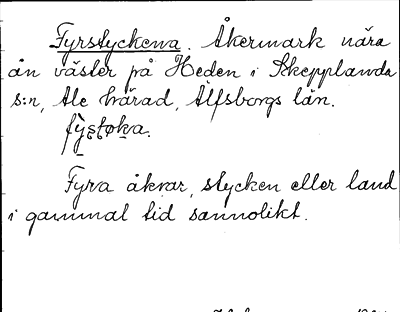 Fyrstyckena. Åkermark nära
ån väster på Heden i Skepplanda
s:n, Ale härad, Älfsborgs län.
Fyra åkrar, stycken eller land
i gammal tid sannolikt.